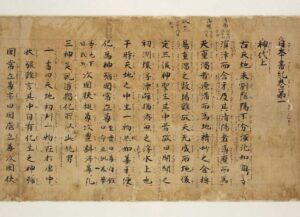 日本書紀巻第一
神代上
古天地未剖陰陽不分渾沌如鶏子
溟涬而含牙及其清陽者薄靡而為
天重濁者淹滞而為地精妙之合搏
易重濁之凝竭難故天先成而地後
定然後神聖生其中焉故曰開闢之
初洲壌浮漂譬猶游魚之浮水上也
于時天地之中生一物状如葦牙便
化為神号国常立尊
次国狭槌尊次豊斟渟尊凡
三神矣乾道独化所以成此純男
一書曰天地初判一物在於虚中
状貌難言其中自有化生之神号
国常立尊亦曰国底立尊次国狭